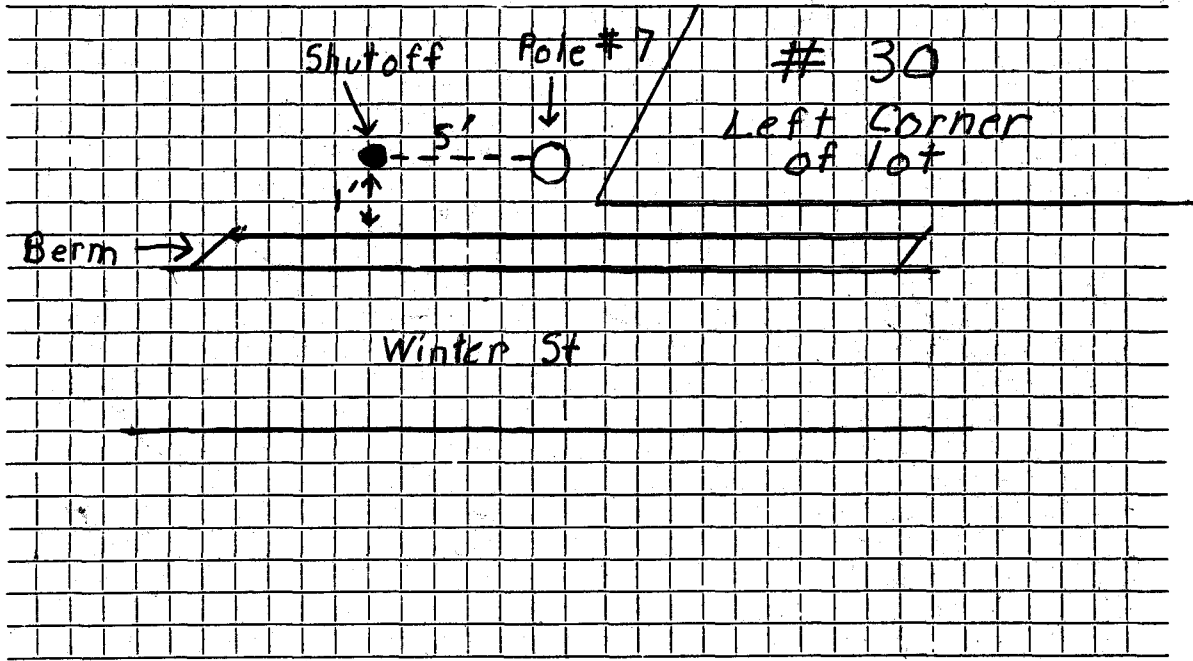 Shutoff
Pole # 7
# 30
Left Corner
of lot
5'
1'
Berm
Winter St